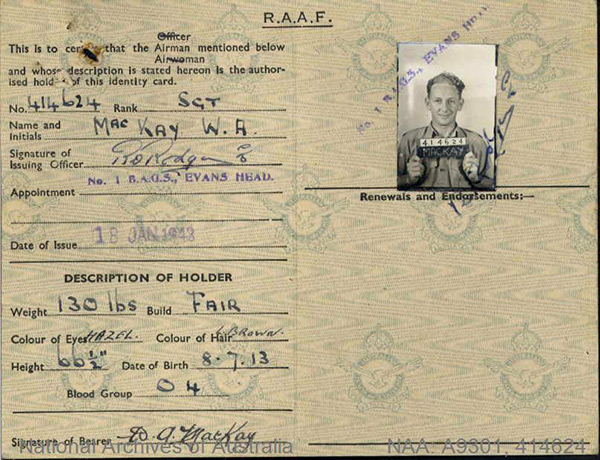 R.A.A.F.
Officer
This is to certify that the Airman mentioned below
Airwoman
and whose description is stated hereon is the author-
ised holder of this identity card.
No. 414624 Rank SGT
Name and Initials MacKAY W.A.
Signature of Issuing Officer
No. 1 B.A.G.S., EVANS HEAD.
Appointment
Date of Issue 18 JAN 1943
DESCRIPTION OF HOLDER
Weight 130 lbs Build FAIR
Colour of Eyes HAZEL. Colour of Hair BROWN.
Height 66½" Date of Birth 8.7.13
Blood Group O4
Signature of Bearer MacKay
No. 1 B.A.G.S., EVANS HEAD.
414624
MACKAY
Renewals and Endorsements:—
National Archives of Australia
NAA: A9301, 414624